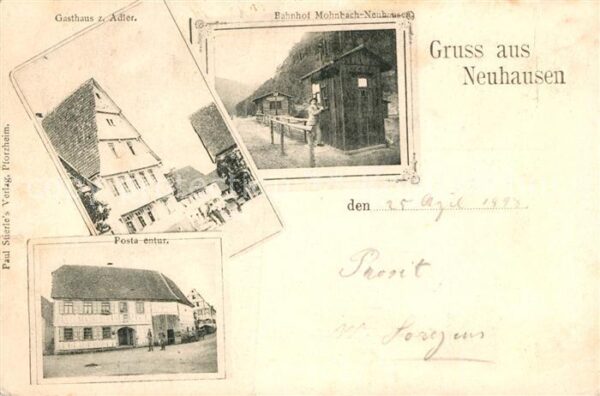 Gasthaus z. Adler.
Bahnhof Mohnbach-Neuhausen.
Gruss aus
Neuhausen
Paul Stierle's Verlag, Pforzheim.
den 25 April 1898
Posta entur.
Prosit